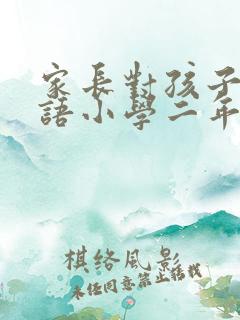 家長對孩子
語小學二年
棋絡風影
未经同意禁止搭载